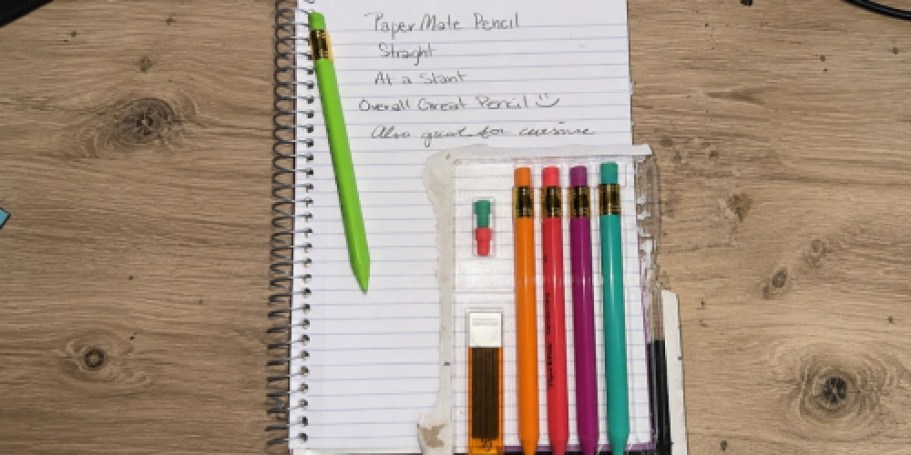 PaperMate Pencil
Straght
At a Slant
Overall Great Pencil
Also great for cursive